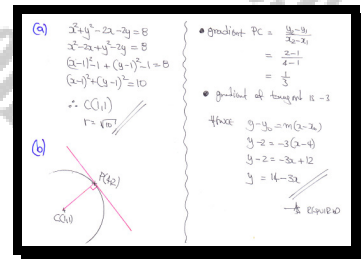 (a) x²+y²-2x-2y=8
x²-2x+y²-2y=8
(x-1)²-1+(y-1)²-1=8
(x-1)²+(y-1)²=10
∴ C(1,1)
r=√10
(b)
P(4,2)
C(1,1)
• gradient PC = y₂-y₁/x₂-x₁
= 2-1/4-1
= 1/3
• gradient of tangent is -3
HENCE y-y₀=m(x-x₀)
y-2=-3(x-4)
y-2=-3x+12
y=14-3x
REQUIRED